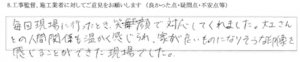 8.工事監督、施工業者に対してご意見をお願いします（良かった点・疑問点・不安点等）
毎日現場に行ったとき、笑顔で対応してくれました。大工さん
との人間関係も温かく感じられ、家が良いものになりそうな印象を
感じることができた現場でした。